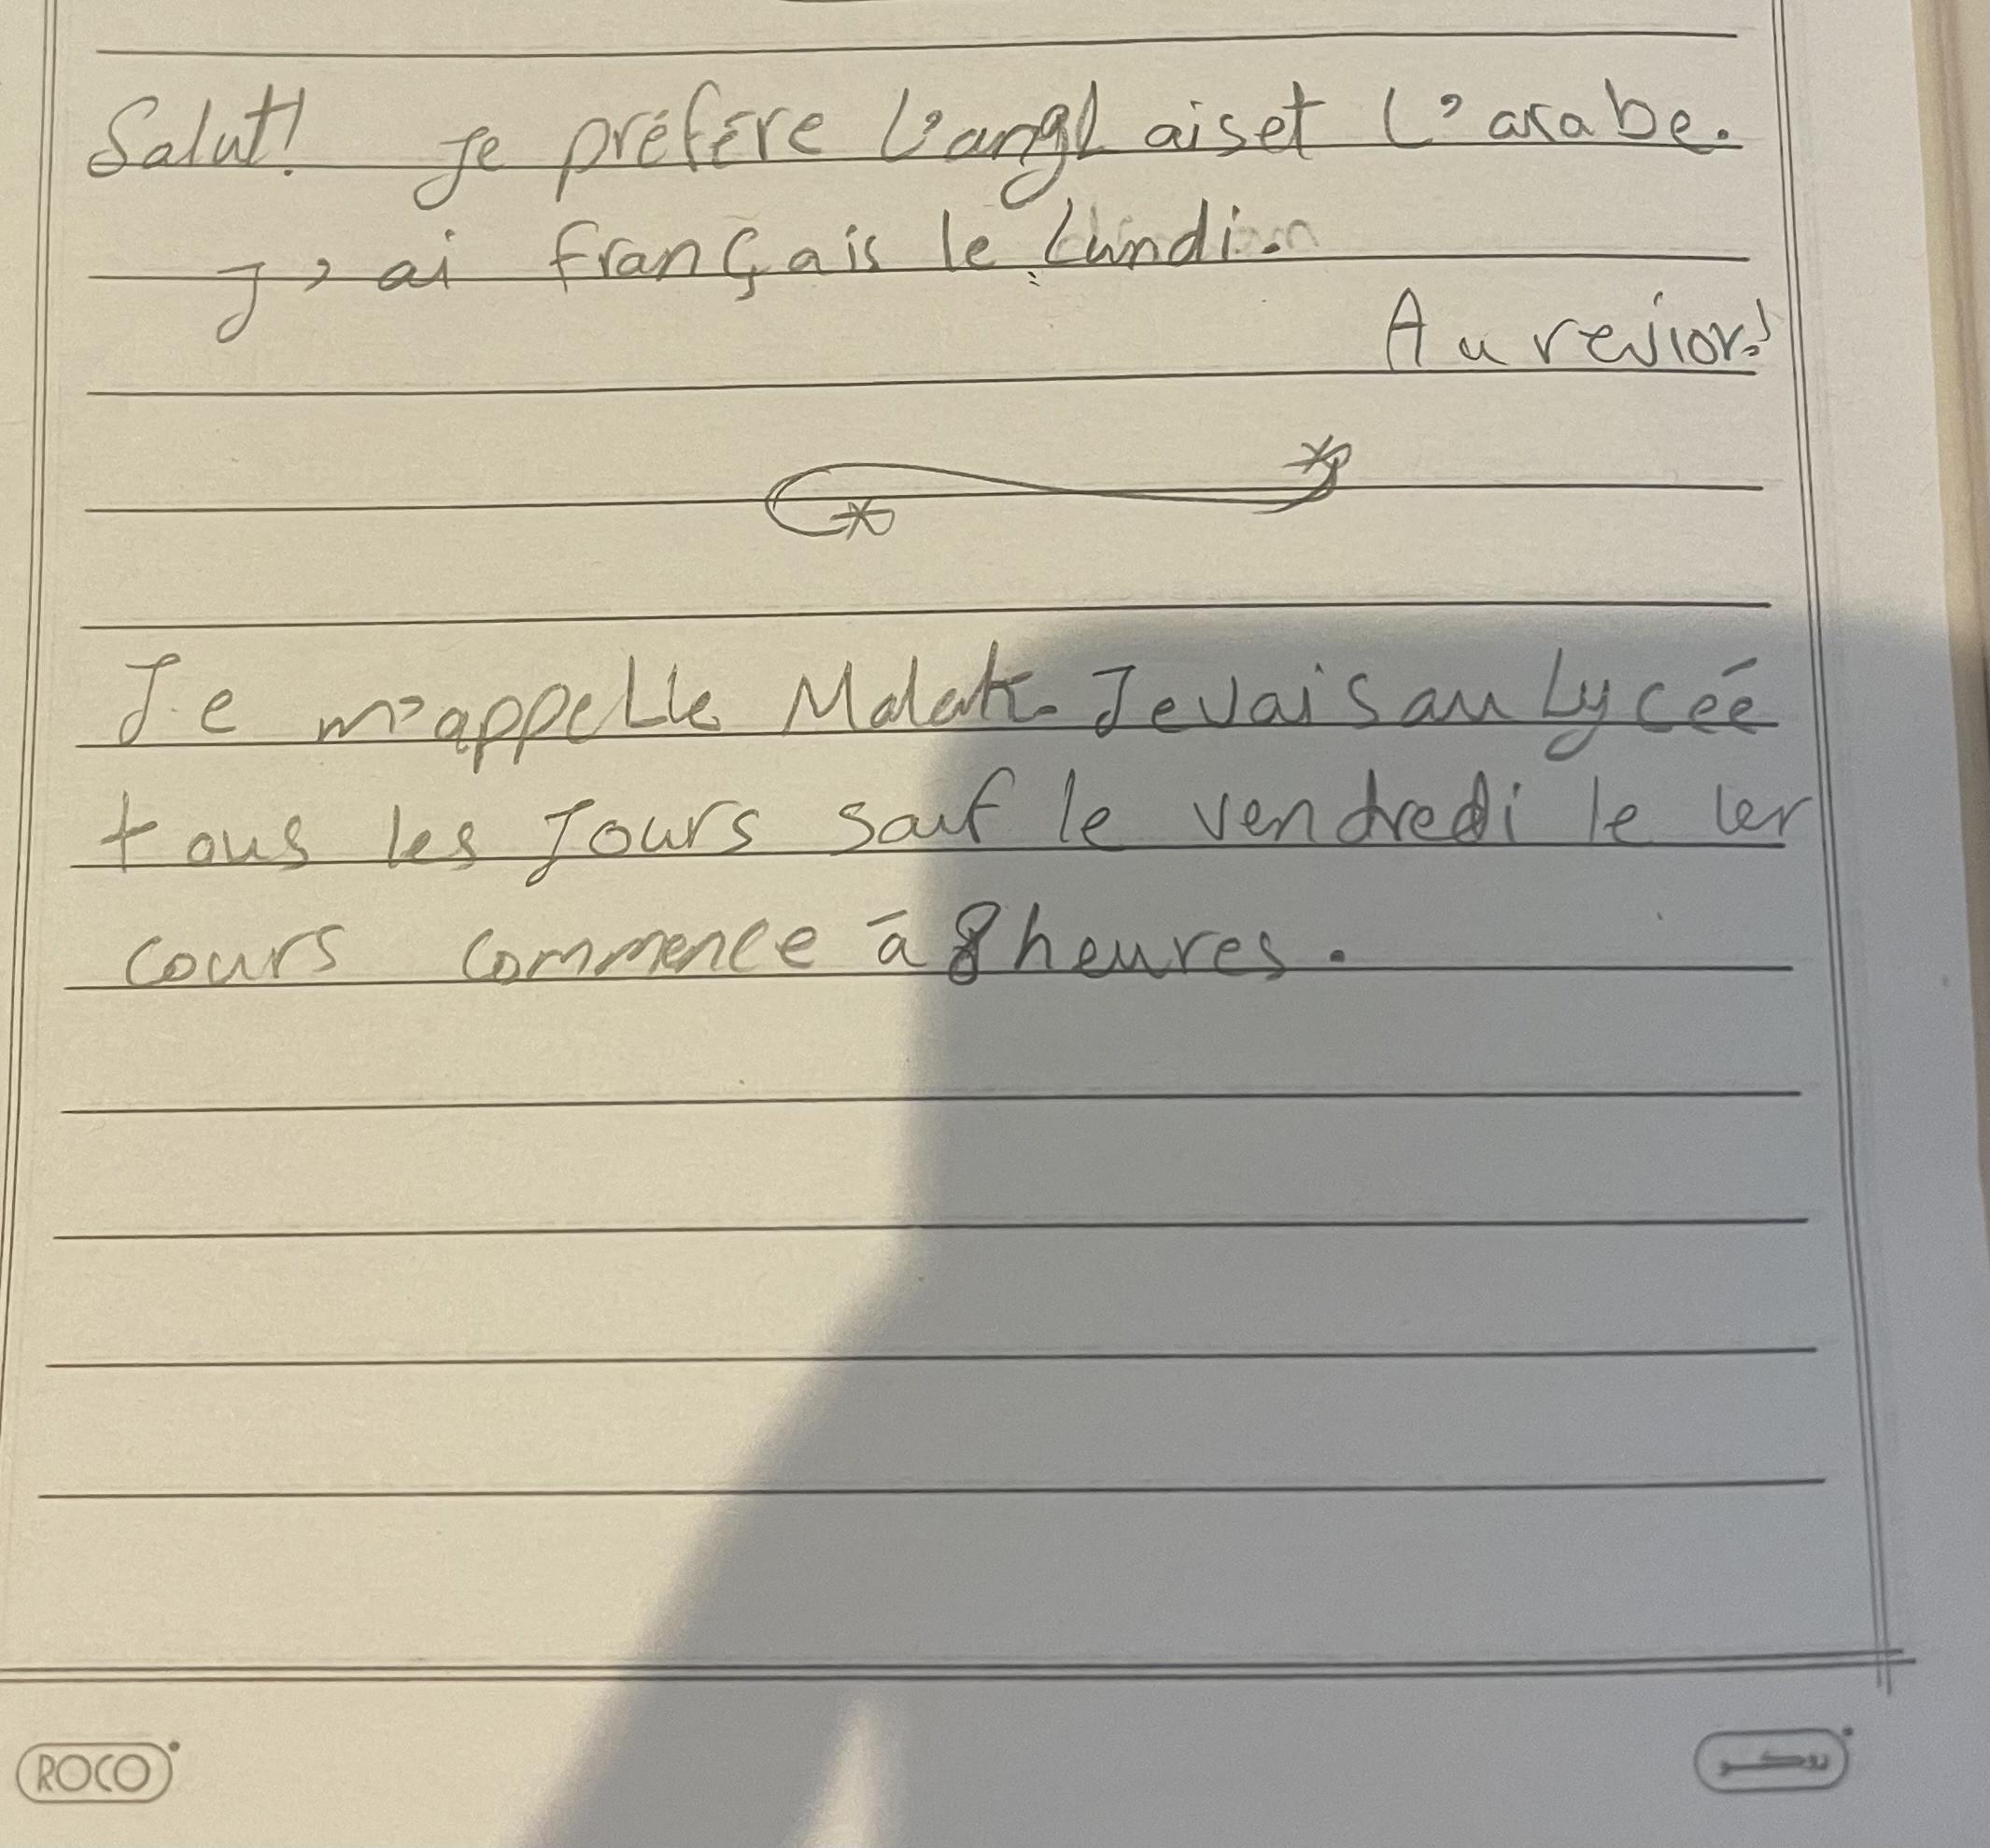 Salut! Je préfére l'anglaiset l'arabe.
J'ai français le Lundi.
Au revior!
Je m'appelle Malak. Je vais au Lycéé
tous les Jours sauf le vendredi le 1er
cours commence à 8 heures.
ROCO
روكو